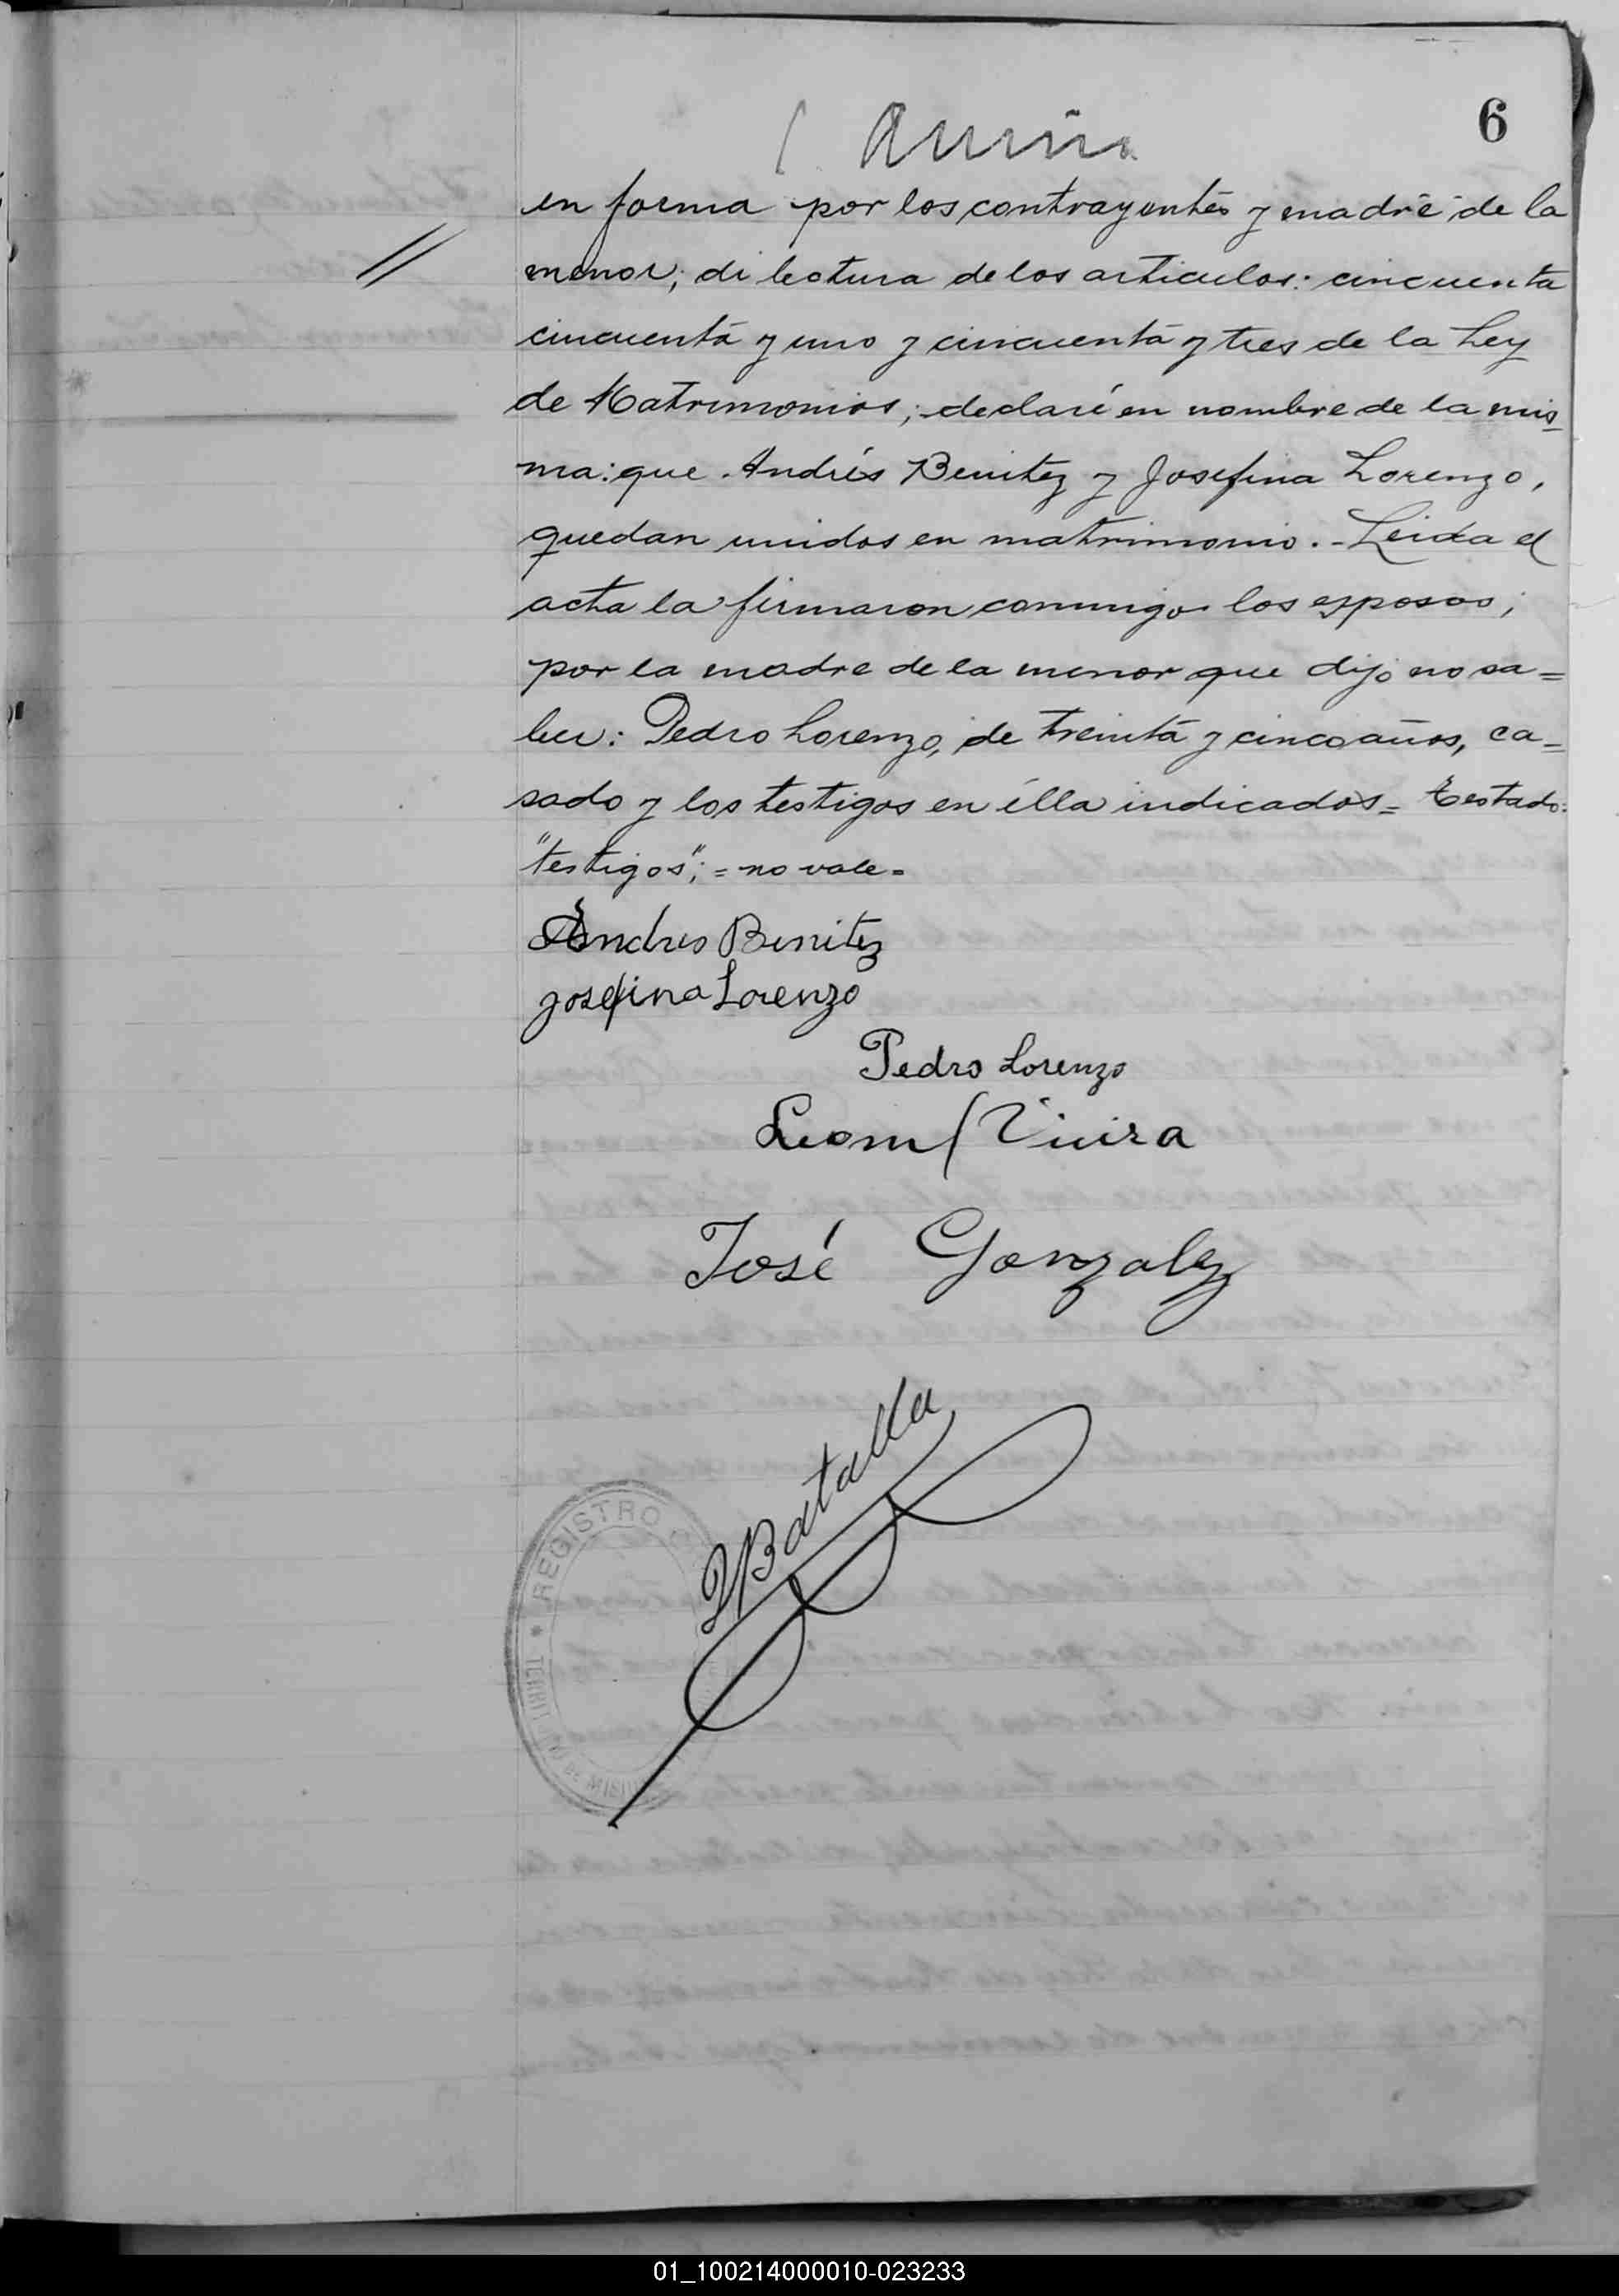 6
en forma por los contrayentes y madre de la
menor; di lectura de los articulos: cincuenta
cincuenta y uno y cincuenta y tres de la Ley
de Matrimonios; declaré en nombre de la mis_
ma: que Andrés Benitez y Josefina Lorenzo,
quedan unidos en matrimonio.- Leida el
acta la firmaron conmigo los esposos;
por la madre de la menor que dijo no sa=
ber: Pedro Lorenzo, de treinta y cinco años, ca=
sado y los testigos en élla indicados= Testado:
"testigos"; = no vale=
Andres Benitez
Josefina Lorenzo
Pedro Lorenzo
José Gonzalez
Batalla
REGISTRO
01_100214000010-023233